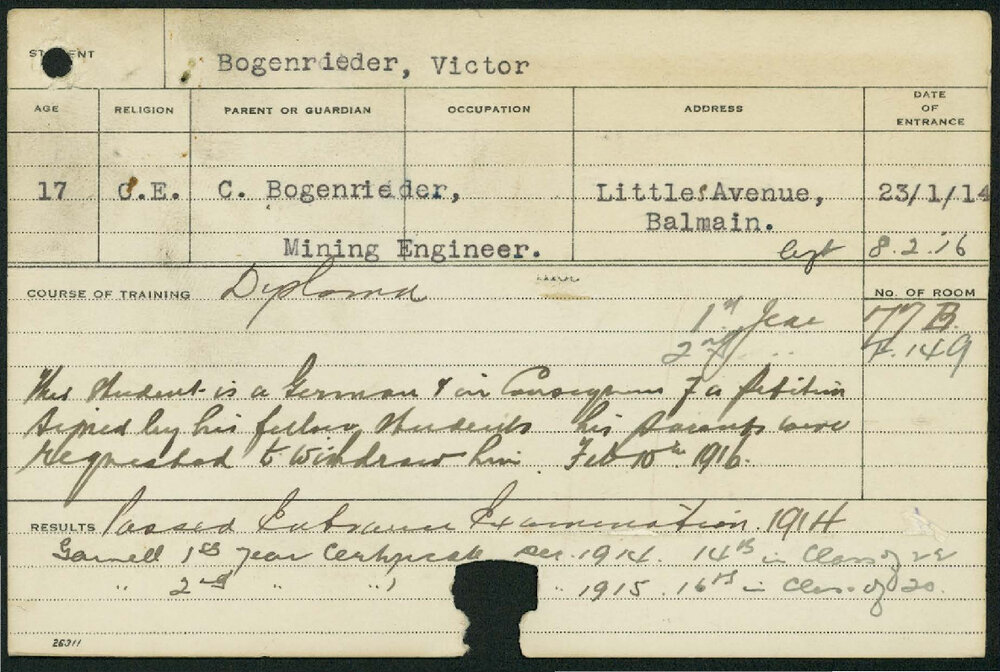 STUDENT Bogenrieder, Victor
AGE RELIGION PARENT OR GUARDIAN OCCUPATION ADDRESS DATE OF ENTRANCE
17 C.E. C. Bogenrieder, Little Avenue, 23/1/14
Balmain.
Mining Engineer. left 8.2.16
COURSE OF TRAINING Diploma No. OF ROOM
1st Year 77 B.
2nd " 149
This student is a German & in Consequence of a Petition
signed by his fellow students his parents were
requested to withdraw him. Feb 10th 1916.
RESULTS Passed Entrance Examination. 1914
Gained 1st year Certificate Dec. 1914. 14th in Class of 22
" 2nd " " " 1915. 16th in Class of 20.
26311